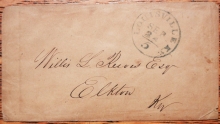 Willis L Reeves Esq
Elkton
Ky